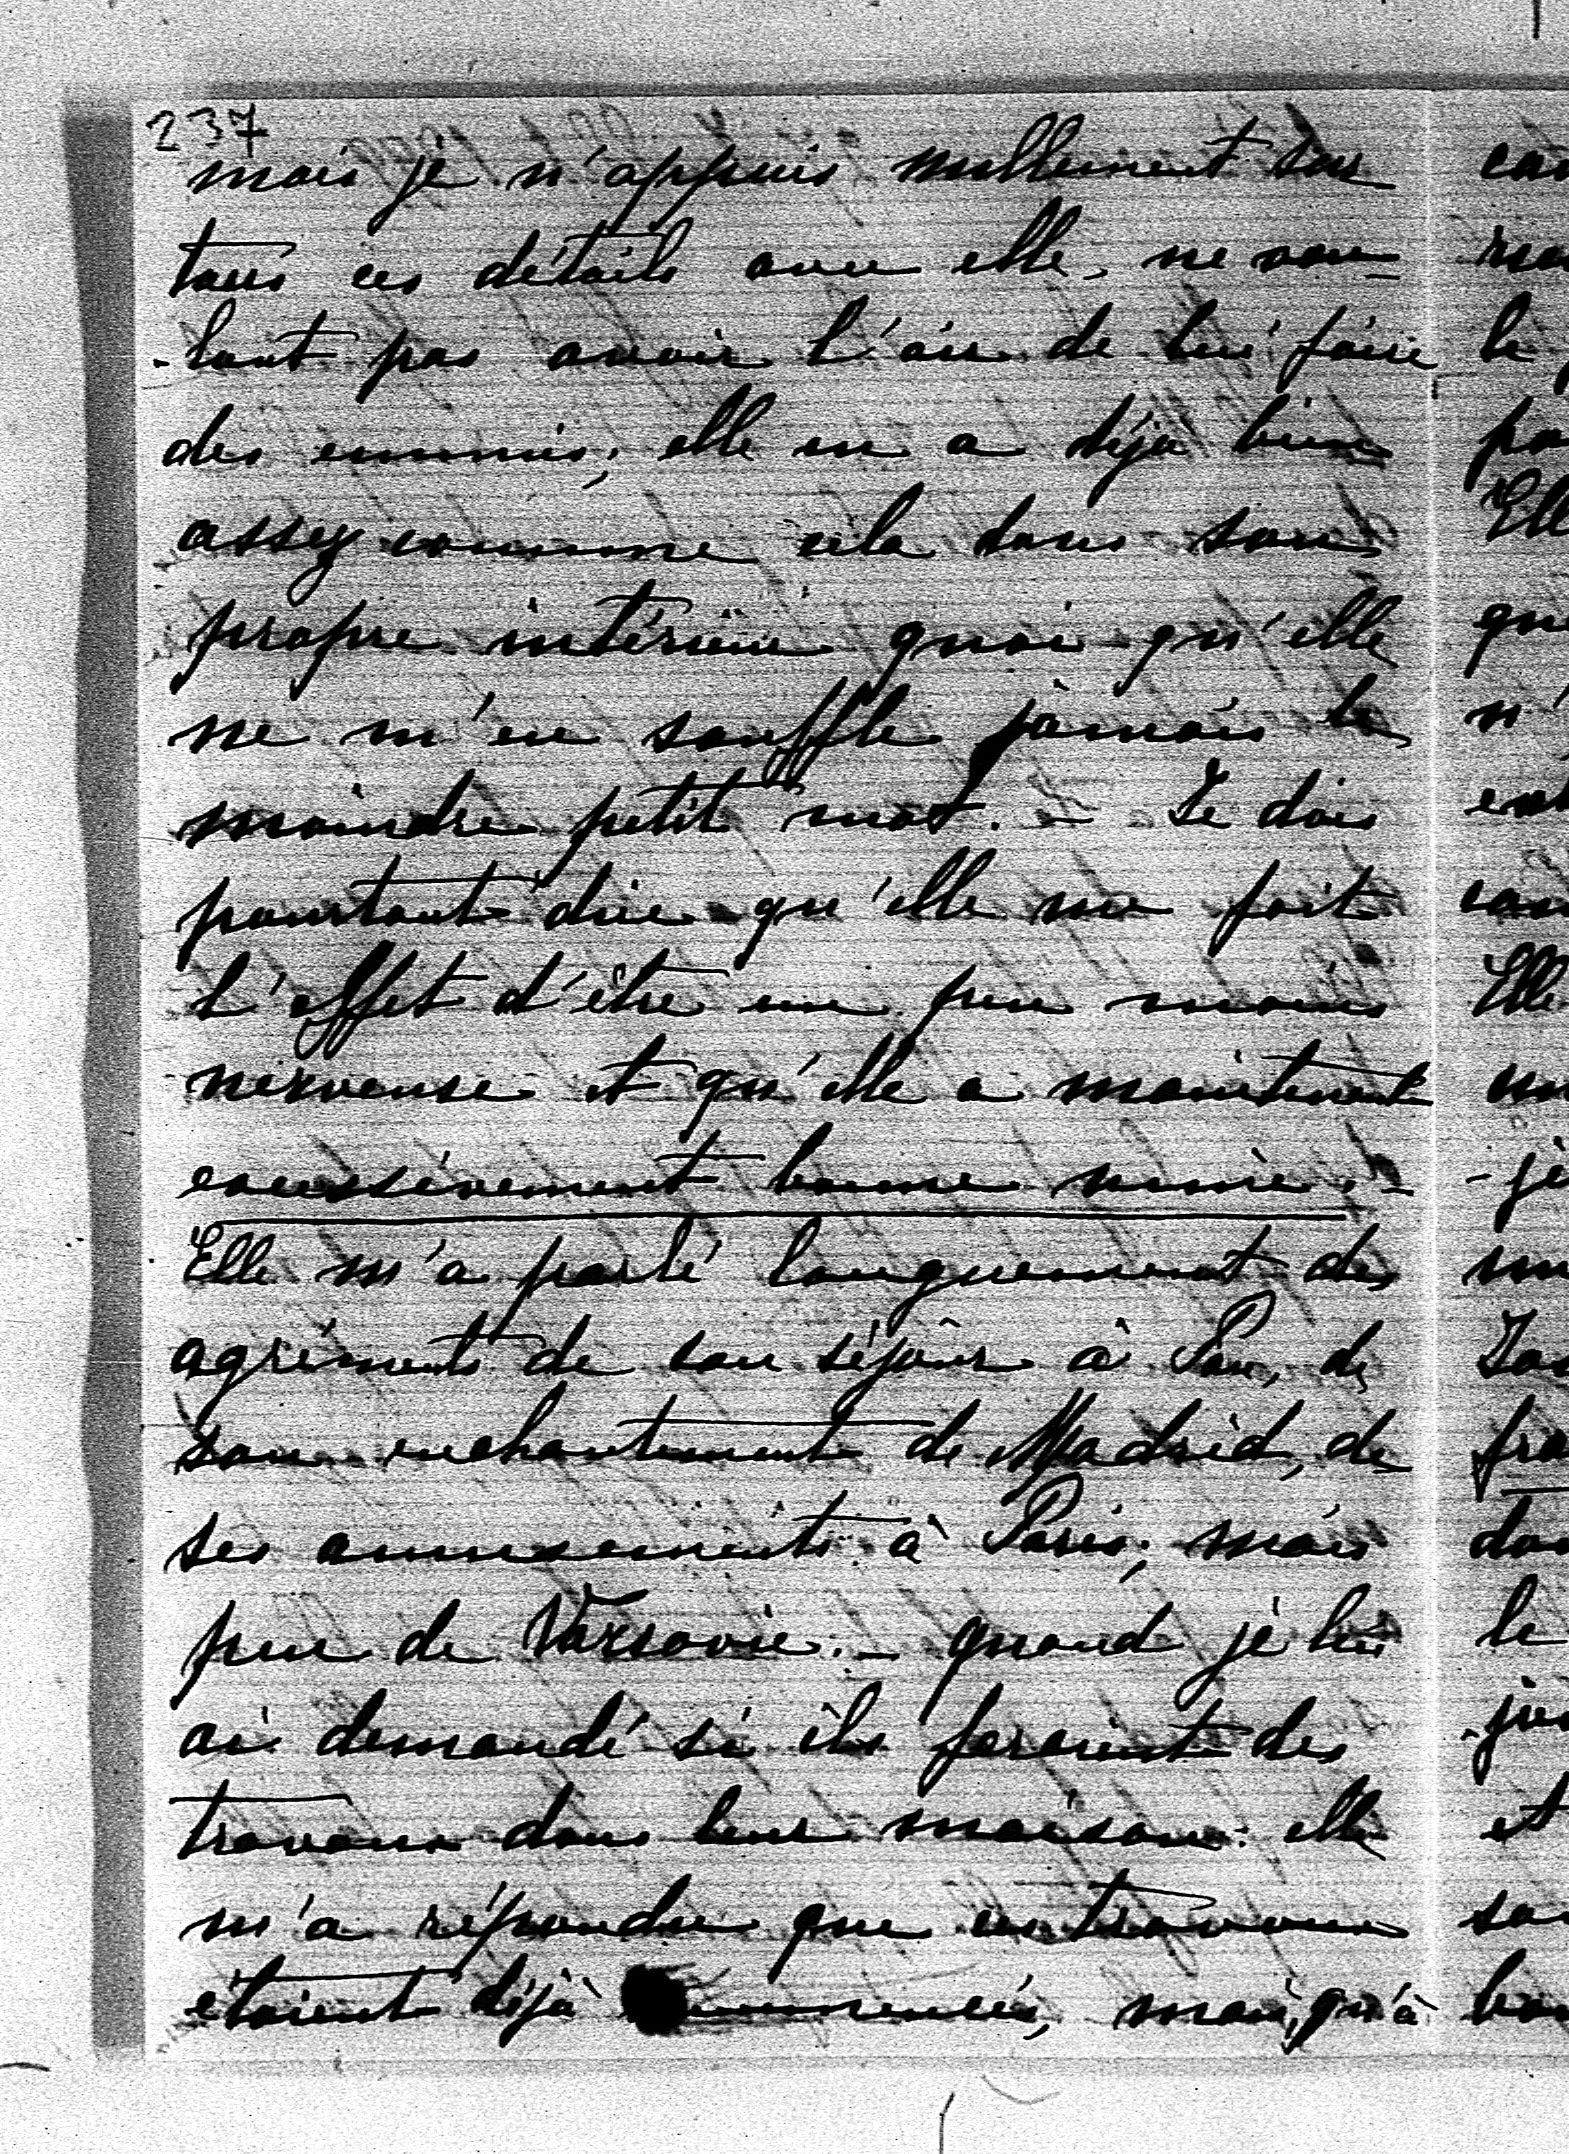 237
mais je n'appuis nullement sur
tous ces détails avec elle, ne vou-
-lant pas avoir l'air de lui faire
des ennuis; elle en a déjà bien
assez comme cela dans son
propre intérieur quoi-qu'elle
ne m'en souffle jamais le
moindre petit mot. - Je dois
pourtant dire qu'elle me fait
l'effet d'être un peu moins
nerveuse et qu'elle a maintenant
excessivement bonne mine. -
Elle m'a parlé longuement des
agréments de son séjour à Pau, de
son enchantement de Madrid, de
ses amusements à Paris; mais
peu de Varsovie. - quand je lui
ai demandé si ils feraient des
travaux dans leur maison: elle
m'a répondu que ces travaux
étaient déjà commencés, mais, qu'à